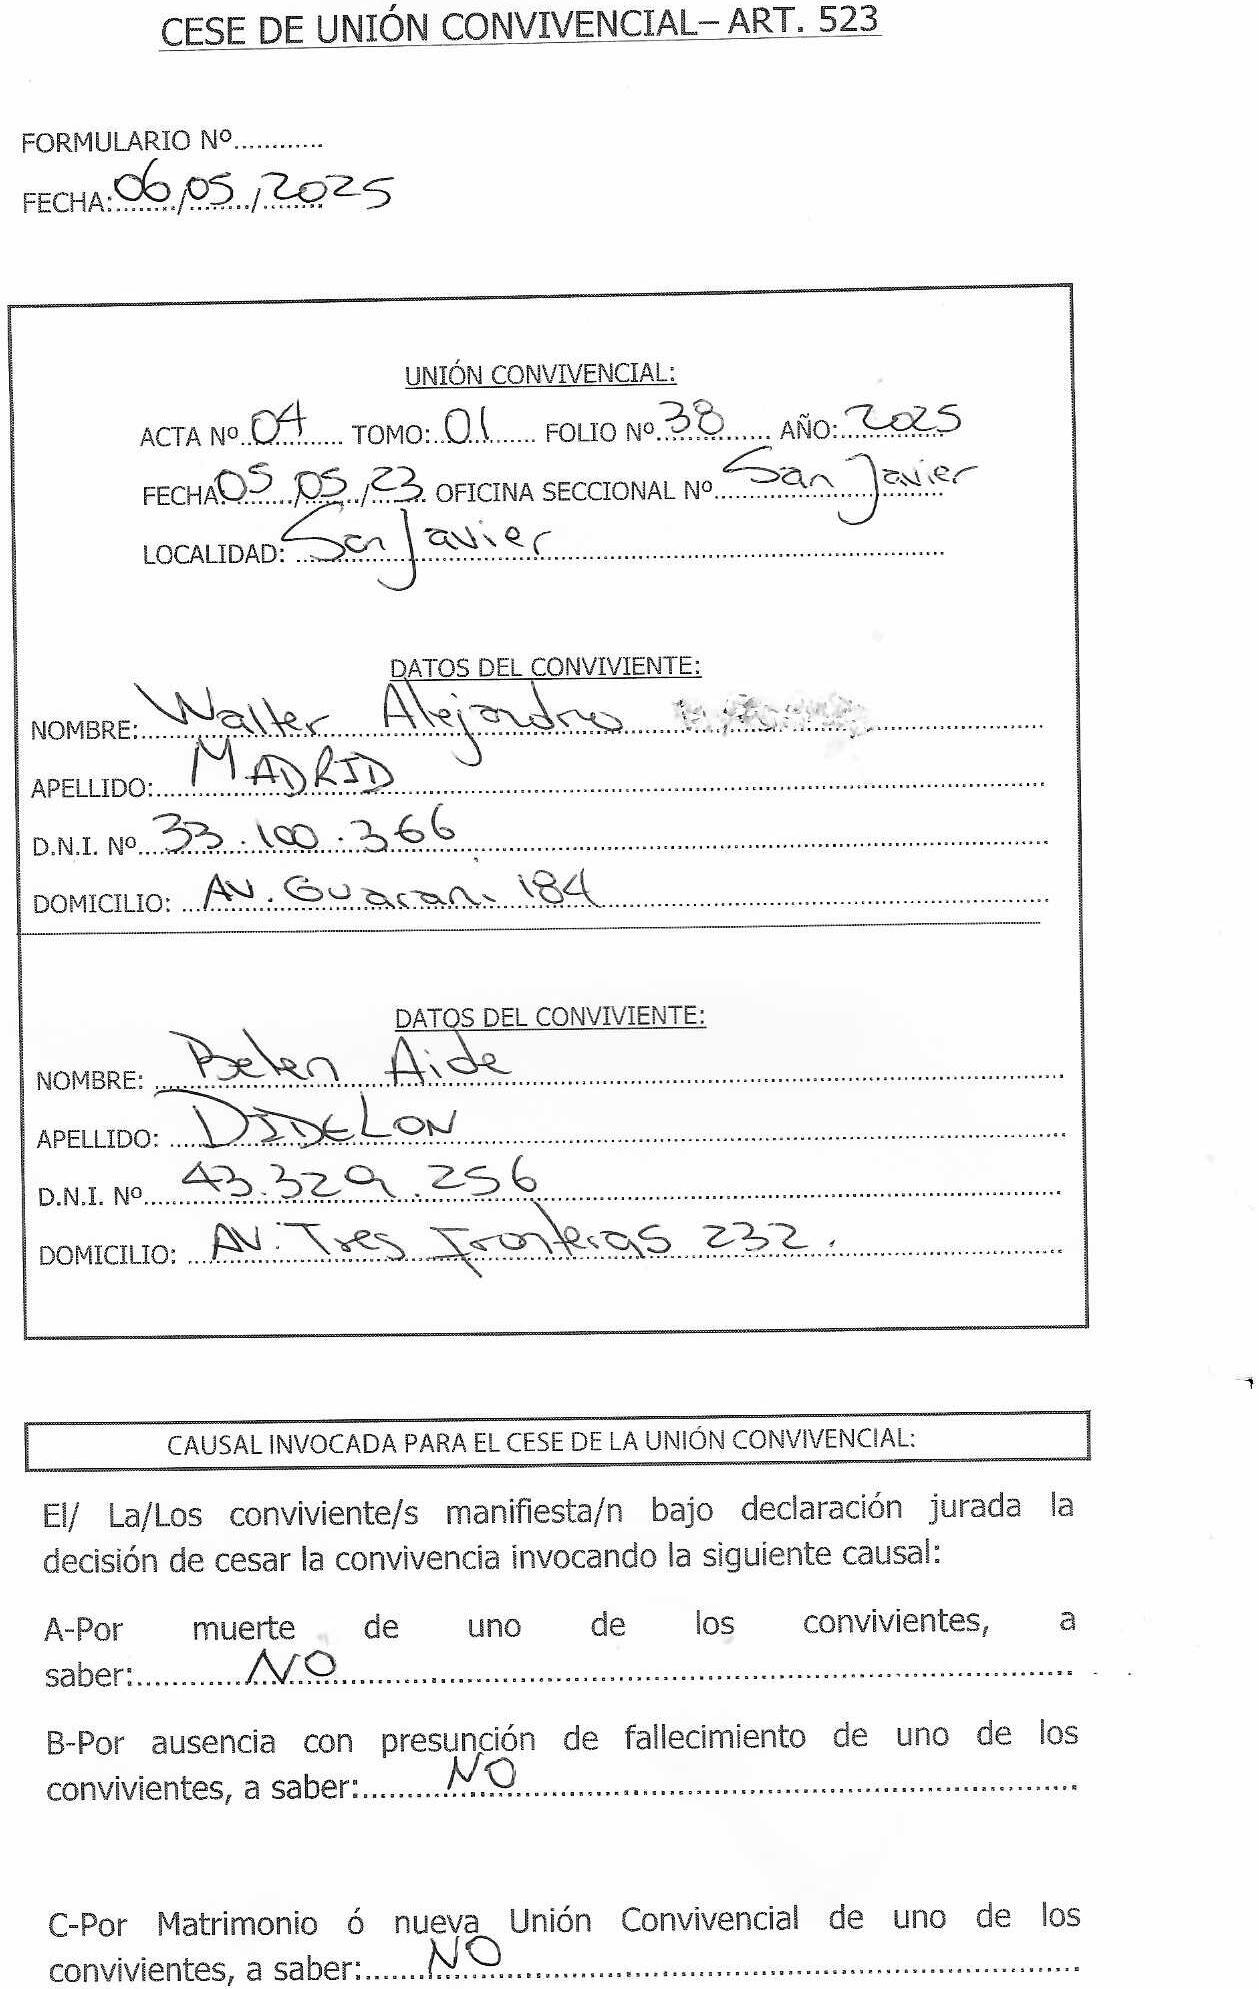 CESE DE UNIÓN CONVIVENCIAL– ART. 523
FORMULARIO Nº............
FECHA: 06/05/2025
UNIÓN CONVIVENCIAL:
ACTA Nº 04 TOMO: 01 FOLIO Nº 38 AÑO: 2025
FECHA 05/05/23 OFICINA SECCIONAL Nº San Javier
LOCALIDAD: San Javier
DATOS DEL CONVIVIENTE:
NOMBRE: Walter Alejandro
APELLIDO: MADRID
D.N.I. Nº 33.100.366
DOMICILIO: AV. Guarani 184
DATOS DEL CONVIVIENTE:
NOMBRE: Belen Aide
APELLIDO: DIDELON
D.N.I. Nº 43.329.256
DOMICILIO: AV. Tres Fronteras 232.
CAUSAL INVOCADA PARA EL CESE DE LA UNIÓN CONVIVENCIAL:
El/ La/Los conviviente/s manifiesta/n bajo declaración jurada la
decisión de cesar la convivencia invocando la siguiente causal:
A-Por muerte de uno de los convivientes, a
saber: NO
B-Por ausencia con presunción de fallecimiento de uno de los
convivientes, a saber: NO
C-Por Matrimonio ó nueva Unión Convivencial de uno de los
convivientes, a saber: NO